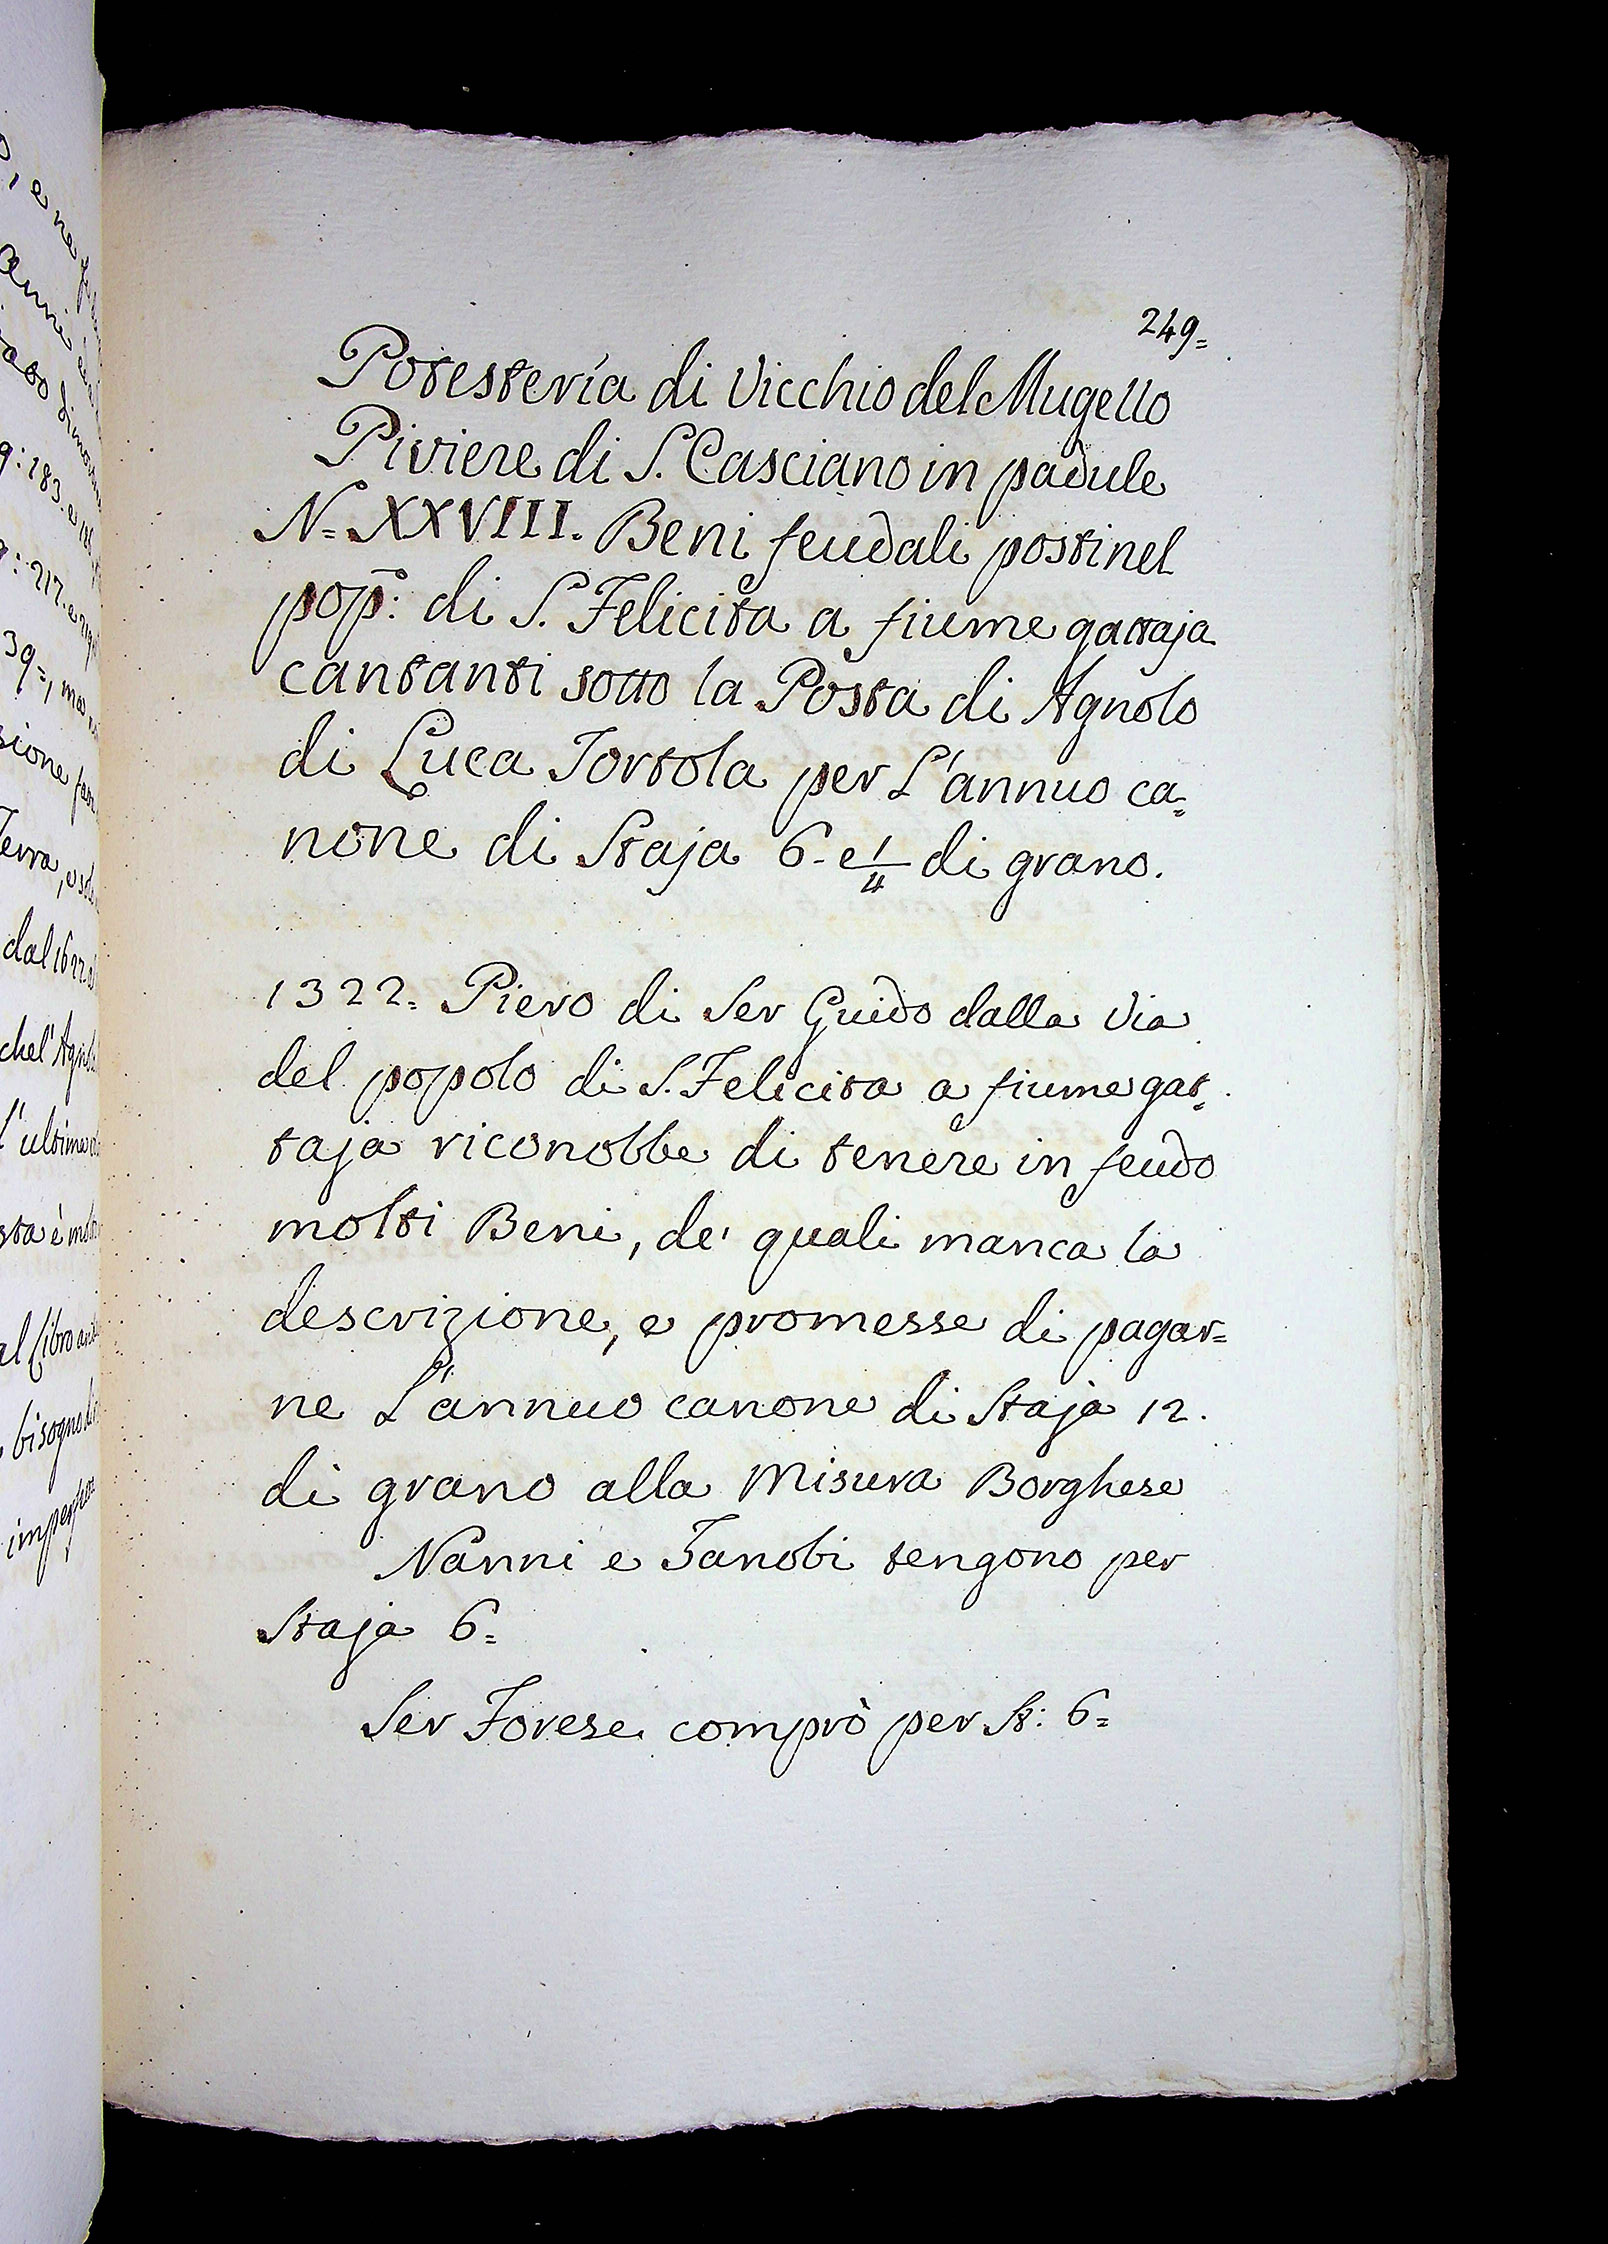 249=
Potesteria di Vicchio del Mugello
Piviere di S. Casciano in padule
N= XXVIII. Beni feudali posti nel
pop: di S. Felicita a fiume gattaja
cantanti sotto la Posta di Agnolo
di Luca Tortola per L'annuo ca=
none di Staja 6- e 1/4 di grano.
1322= Piero di Ser Guido dalla Via
del popolo di S. Felicita a fiume gat=
taja riconobbe di tenere in feudo
molti Beni, de' quali manca la
descrizione, e promesse di pagar=
ne L'annuo canone di Staja 12.
di grano alla Misura Borghese
Nanni e Zanobi tengono per
Staja 6=
Ser Forese comprò per St: 6=
9: 183. e
: 217. e
39=,
sione
Terra, e
dal 1622
chel' Agnolo
l'ultime
sta è
al Libro
bisogno